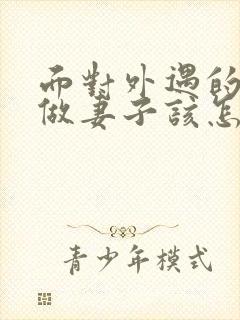 而對外遇的
做妻子該怎
青少年模式